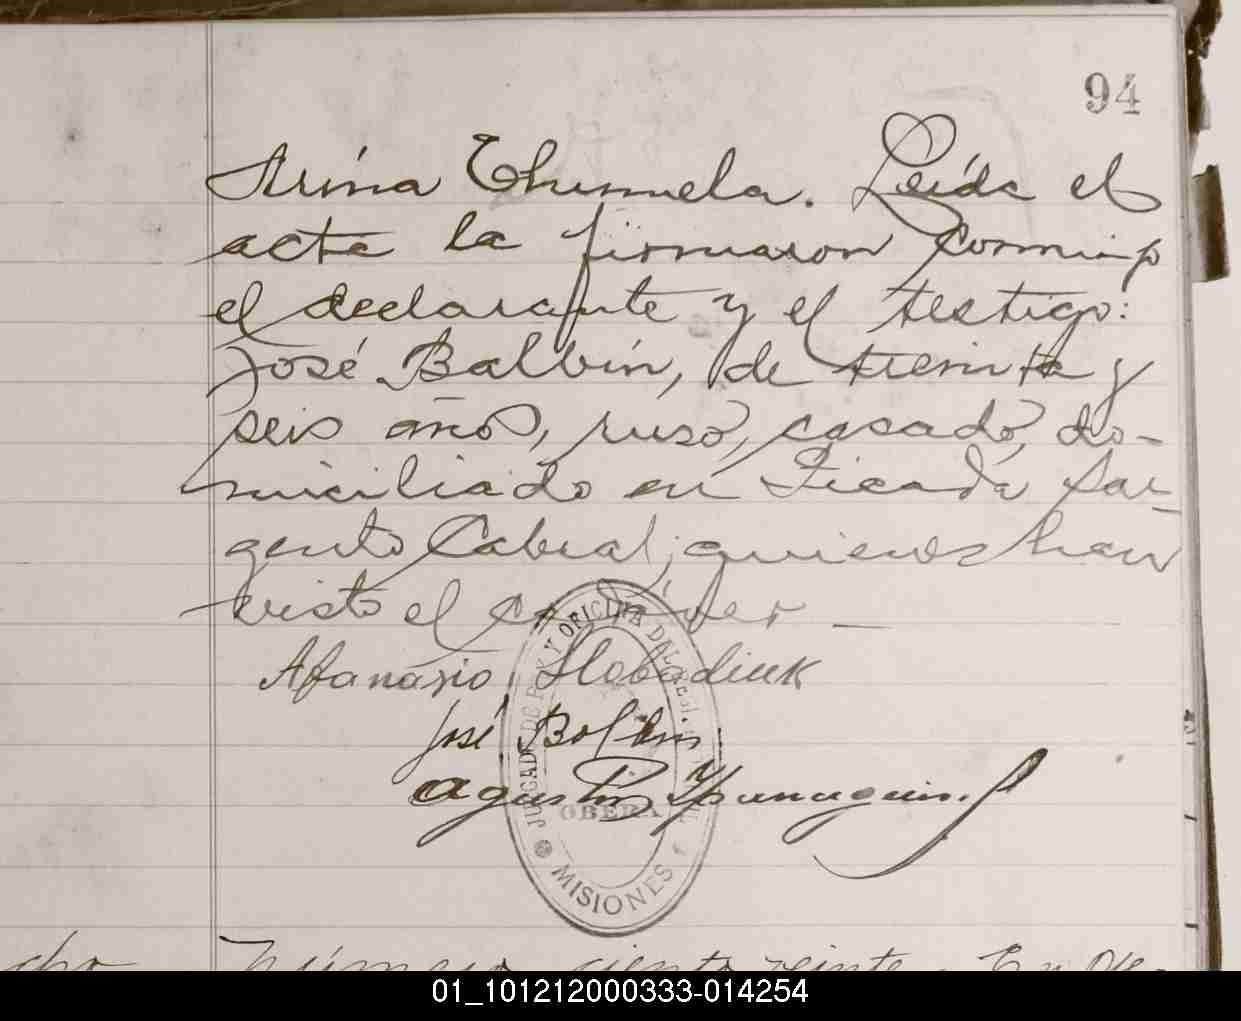 94
Irina Chumela. Leída el
acta la firmaron conmigo
el declarante y el testigo:
José Balbin, de treinta y
seis años, ruso, casado, do-
miciliado en Picada Sar-
gento Cabral; quienes han
visto el cadáver —
Afanasio Slobadiuk
José Balbin
Agustín
JUZGADO DE PAZ Y OFICINA DAL
OBERA
MISIONES
cho
Número ciento veinte. En Obe-
01_101212000333-014254